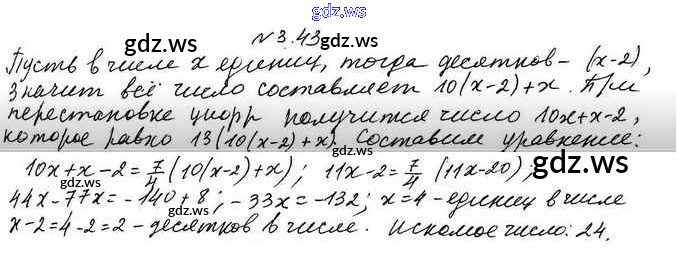 gdz.ws
№3.43
gdz.ws
gdz.ws
Пусть в числе x единиц, тогда десятков - (x-2),
Значит всё число составляет 10(x-2)+x. При
перестановке цифр получится число 10x+x-2,
которое равно 13(10(x-2)+x). Составим уравнение:
10x+x-2=7/4(10(x-2)+x); 11x-2=7/4(11x-20);
gdz.ws
gdz.ws
44x-77x=-140+8; -33x=-132; x=4-единиц в числе
x-2=4-2=2-десятков в числе. Искомое число: 24.
gdz.ws